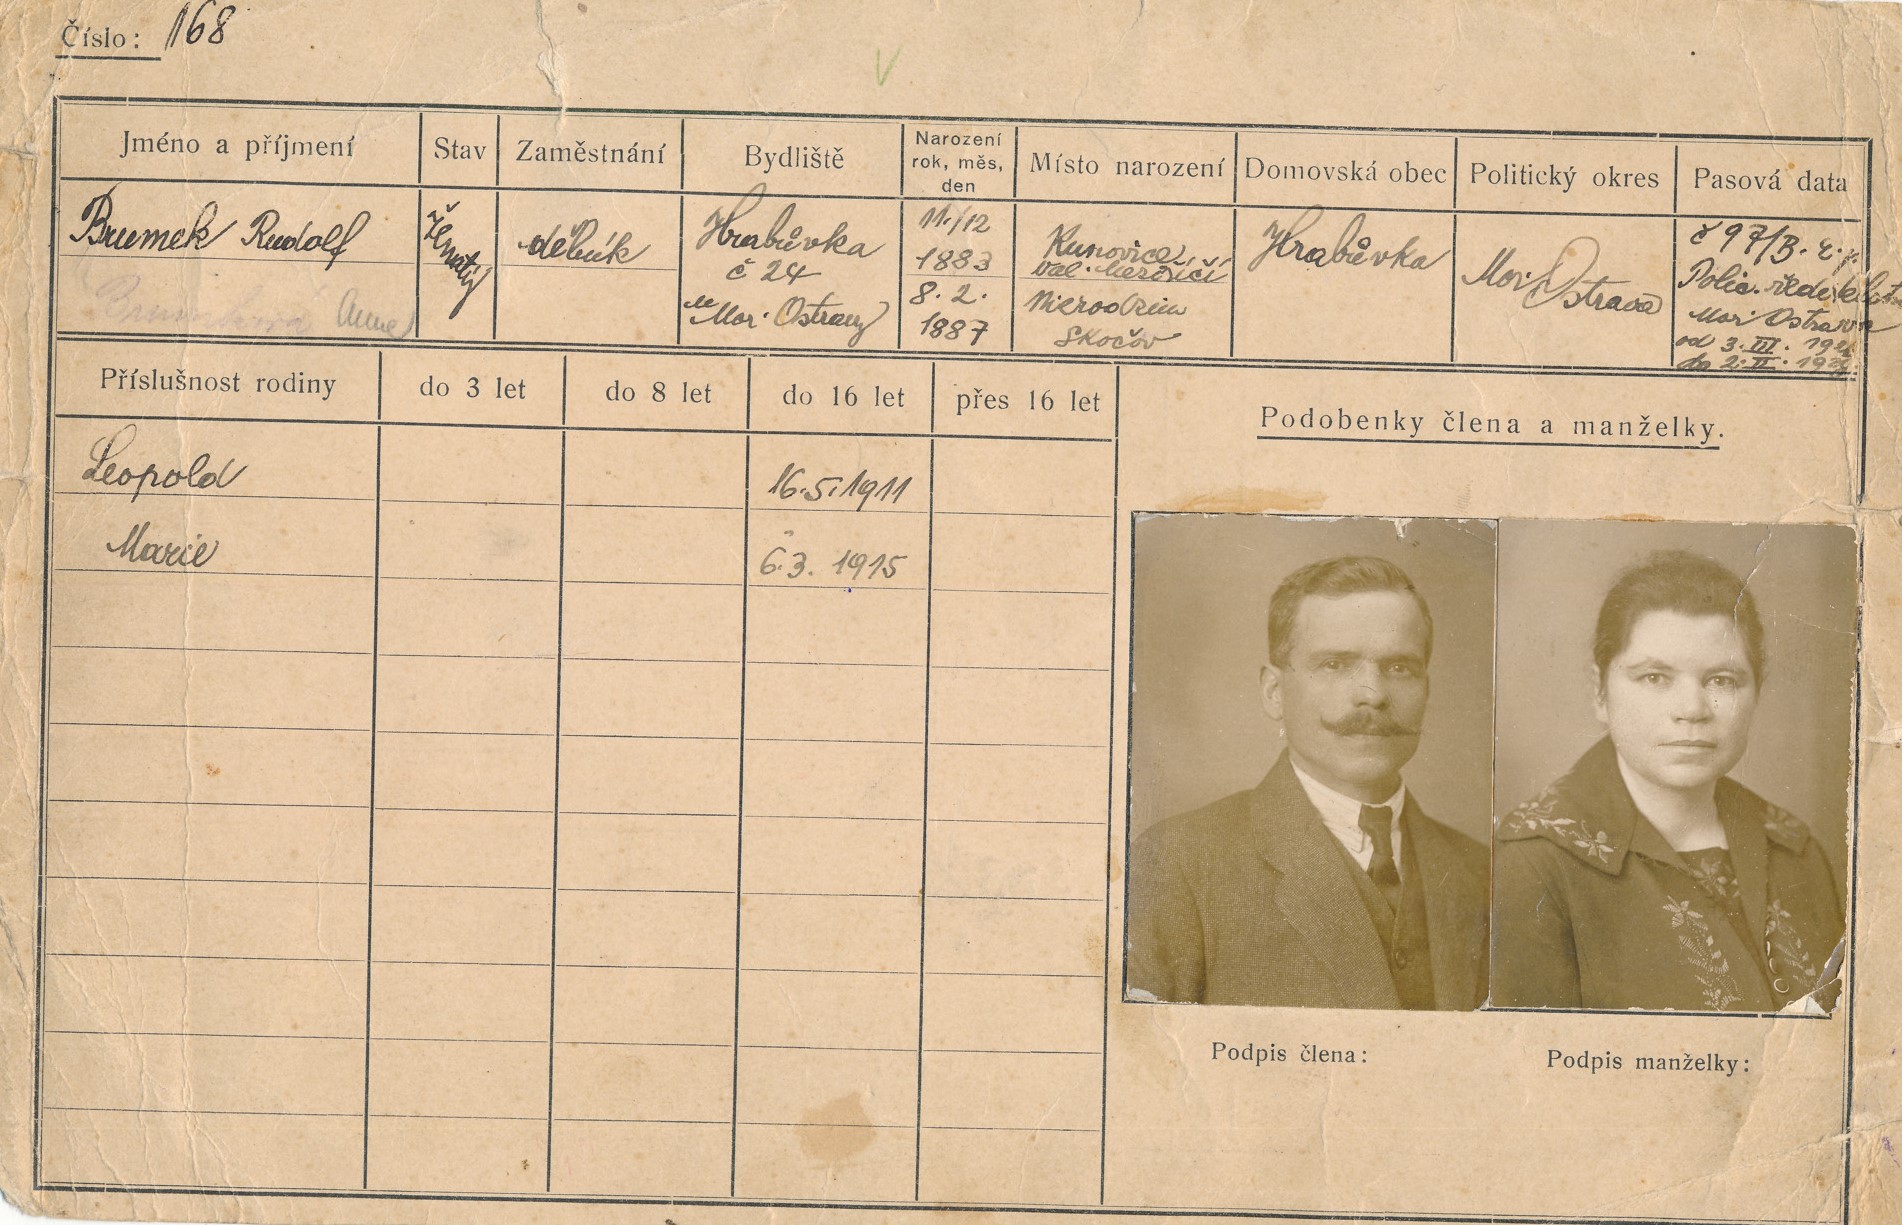 Číslo: 168
Jméno a příjmení
Stav
Zaměstnání
Bydliště
Narození
rok, měs,
den
Místo narození
Domovská obec
Politický okres
Pasová data
Brumek Rudolf
Anna
Ženatý
dělník
Hrabůvka
č 24
Mor. Ostravy
11./12
1883
8. 2.
1887
Kunovice
Val. Meziříčí
Nierodzim
Skočov
Hrabůvka
Mor. Ostrava
č 97/B.
Polic. ředitelst
Mor. Ostrava
od 3. III.
do 2. II.
Příslušnost rodiny
do 3 let
do 8 let
do 16 let
přes 16 let
Podobenky člena a manželky.
Leopold 16.5.1911
Marie 6.3. 1915
Podpis člena:
Podpis manželky: